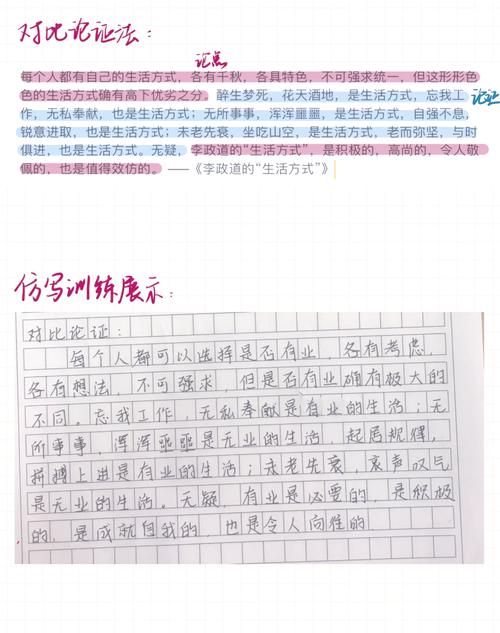 对比论证法：
论点
每个人都有自己的生活方式，各有千秋，各具特色，不可强求统一，但这形形色
色的生活方式确有高下优劣之分。醉生梦死，花天酒地，是生活方式，忘我工
论证
作，无私奉献，也是生活方式；无所事事，浑浑噩噩，是生活方式，自强不息，
锐意进取，也是生活方式；未老先衰，坐吃山空，是生活方式，老而弥坚，与时
俱进，也是生活方式。无疑，李政道的“生活方式”，是积极的，高尚的，令人敬
佩的，也是值得效仿的。——《李政道的“生活方式”》
仿写训练展示：
对比论证：
每个人都可以选择是否有业，各有考虑，
各有想法，不可强求，但是否有业确有极大的
不同。忘我工作，无私奉献是有业的生活；无
所事事，浑浑噩噩是无业的生活，起居规律，
拼搏上进是有业的生活；未老先衰，哀声叹气
是无业的生活。无疑，有业是必要的，是积极
的，是成就自我的，也是令人向往的